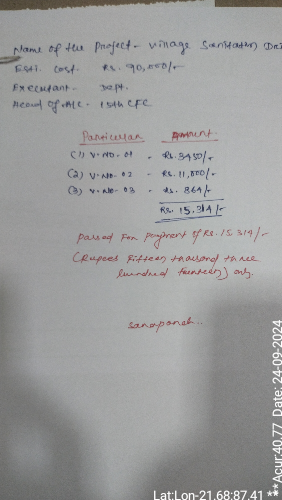 Name of the Project - Village Sanitation
Esti. Cost. Rs. 90,000/-
Executant - Dept.
Head of A/C - 15th CFC
Particular Amount
(1) V. No. 01 - Rs. 3450/-
(2) V. No. 02 - Rs. 11,000/-
(3) V. No. 03 - Rs. 864/-
Rs. 15,314/-
Passed for payment of Rs. 15,314/-
(Rupees fifteen thousand three
hundred fourteen) only.
Lat:Lon-21.68:87.41
**Acur:40.77 Date: 24-09-2024